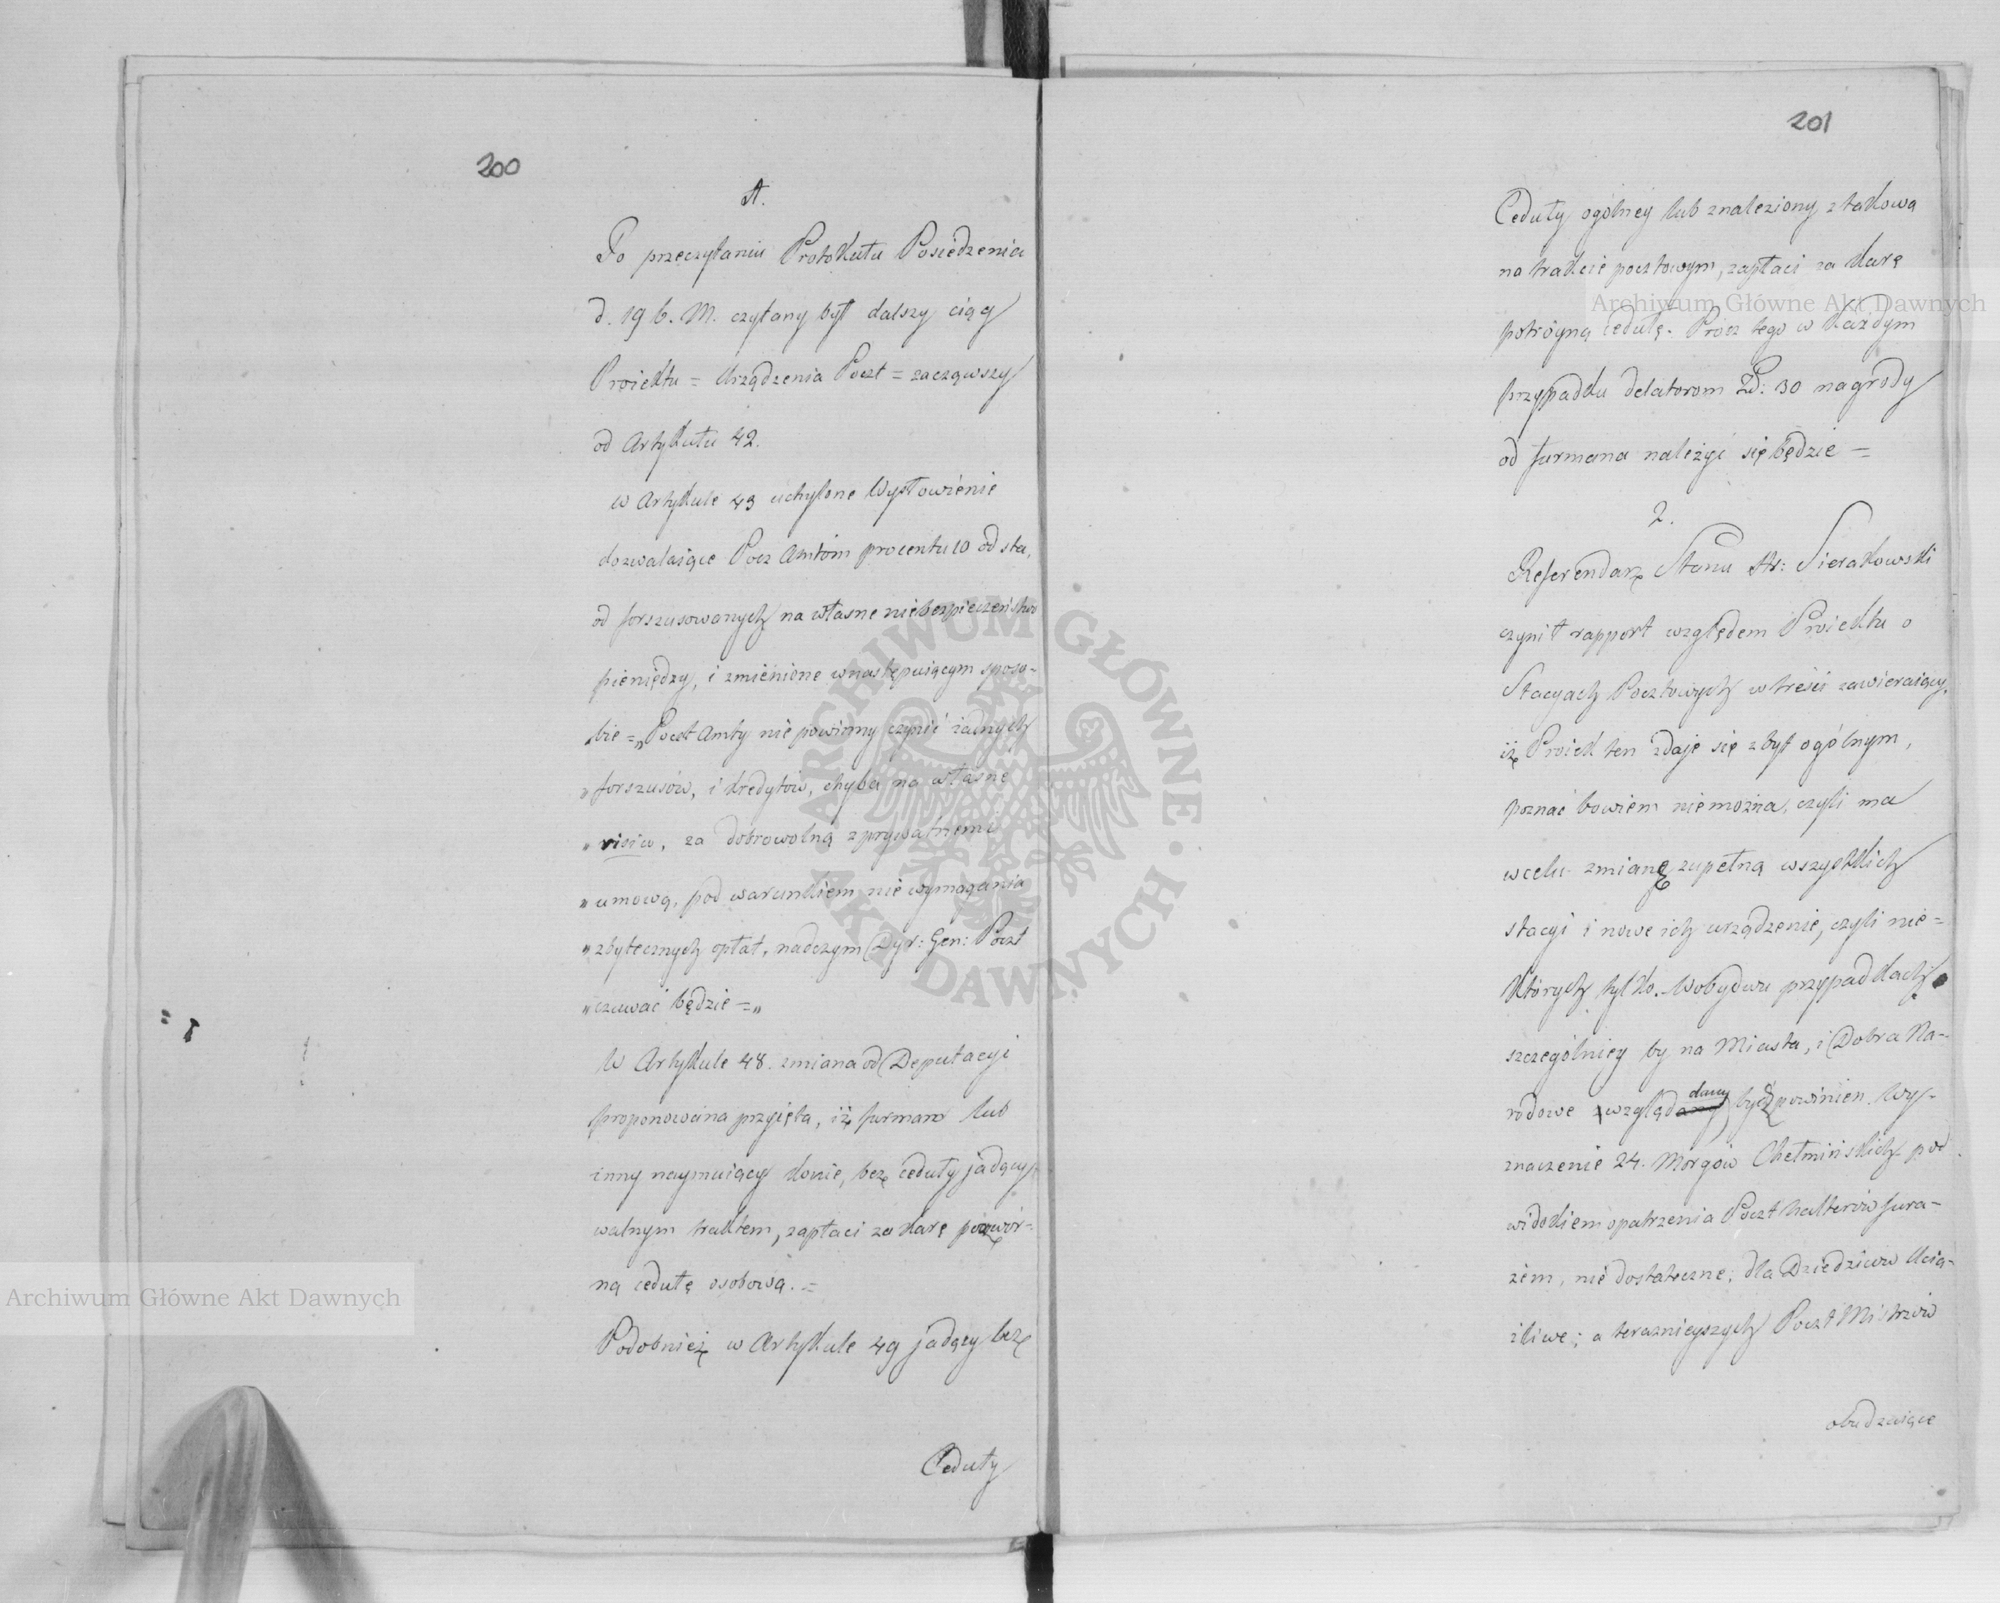 200
A.
Po przeczytaniu Protokułu Posiedzenia
d. 19 b. M. czytany był dalszy ciąg
Proiektu = Urządzenia Poczt = zacząwszy
od Artykułu 42.
W Artykule 43 uchylone Wysłowienie
dozwalaiące Pocz Amtóm procentu 10 od sta,
od forszusowanych na własne niebezpieczeństwo
pieniędzy, i zmienione wnastępuiącym sposo-
bie = „Poczt Amty nie powinny czynić żadnych
„ forszusów, i kredytów, chyba na własne
„ risico, za dobrowolną z prywatnemi
„ umową, pod warunkiem nie wymagania
„ zbytecznych opłat, nadczym Dyr: Gen: Poczt
„ czuwać będzie = „
W Artykule 48. zmiana od Deputacyi
proponowana przyięta, iż furman lub
inny naymuiący konie, bez ceduły jadący
walnym traktem, zapłaci za karę
ną cedułę osobową. =
Podobnież w Artykule 49 jadący bez
Ceduły
201
Ceduły ogólney lub znaleziony z takową
na trakcie pocztowym, zapłaci za karę
potróyną cedułę. Prócz tego w każdym
przypadku delatorom Zł: 30 nagrody
od furmana należyć się będzie =
2.
Referendarz Stanu Hr: Sierakowski
czynił rapport względem Proiektu o
Stacyach Pocztowych w treści zawieraiący,
iż Proiek ten zdaje się zbyt ogólnym,
poznać bowiem niemożna, czyli ma
wcelu zmianę zupełną wszystkich
stacyi i nowe ich urządzenie, czyli nie=
których tylko. Wobydwu przypadkach
szczególniey by na Miasta, i Dobra Na-
rodowe wzgląd dany być powinien. Wy-
znaczenie 24. Morgów Chełmińskich pod
widokiem opatrzenia Poczthalterów fura-
żem, nie dostateczne; dla Dziedziców Ucią-
żliwe; a teraznieyszych Poczt Mistrzów
obudzaiące
Archiwum Główne Akt Dawnych
Archiwum Główne Akt Dawnych
ARCHIWUM GŁÓWNE AKT DAWNYCH